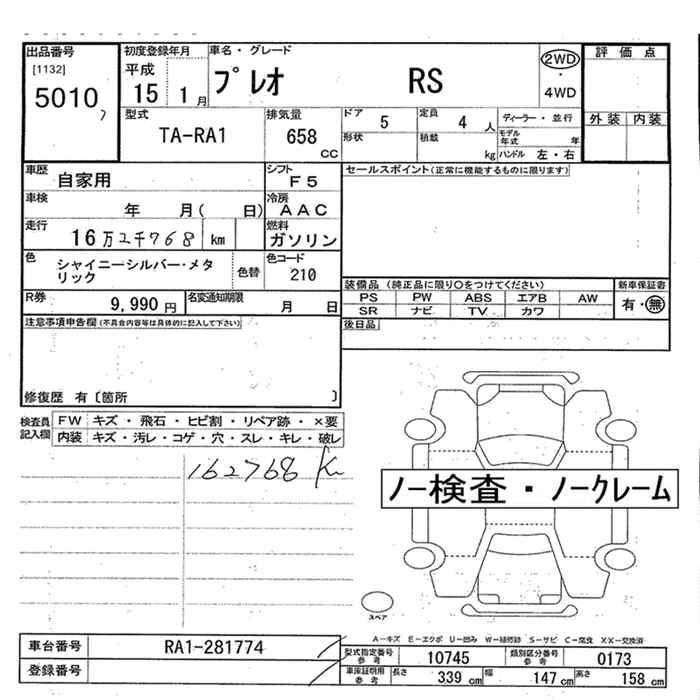 出品番号
[1132]
5010
初度登録年月
平成
15 1月
車名・グレード
プレオ RS
2WD
・
4WD
評価点
外装 内装
型式
TA-RA1
排気量
658
CC
ドア
5
形状
定員
4 人
積載
kg
ディーラー・並行
モデル年式 年
ハンドル 左・右
車歴
自家用
シフト
F5
車検
年 月( 日)
冷房
AAC
走行
16万2千768 km
燃料
ガソリン
色
シャイニーシルバー・メタリック
色替
色コード
210
R券
9,990 円
名変通知期限
月 日
セールスポイント(正常に機能するものに限ります)
装備品 (純正品に限り○をつけてください)
PS PW ABS エアB AW
SR ナビ TV カワ
新車保証書
有・無
後日品
注意事項申告欄(不具合内容等は具体的に記入して下さい)
修復歴 有〔箇所 〕
検査員記入欄
FW キズ・飛石・ヒビ割・リペア跡・×要
内装 キズ・汚レ・コゲ・穴・スレ・キレ・破レ
162768 K
ノー検査・ノークレーム
スペア
A-キズ E-エクボ U-凹み W-補修跡 S-サビ C-腐食 XX-交換済
車台番号 RA1-281774
登録番号
型式指定番号
参考
10745
類別区分番号
参考
0173
車庫証明用
参考
長さ 339 cm 幅 147 cm 高さ 158 cm